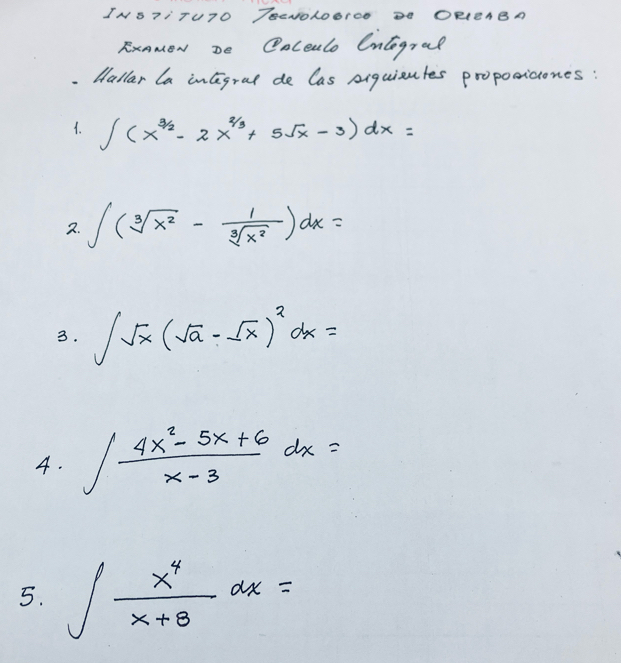 INSTITUTO TECNOLOGICO DE ORIZABA
EXAMEN DE Calculo Integral
- Hallar la integral de las siguientes proposiciones:
1. ∫(x^3/2 - 2x^2/3 + 5√x - 3)dx =
2. ∫(∛x² - 1/∛x²)dx =
3. ∫√x(√a - √x)² dx =
4. ∫ (4x² - 5x + 6)/(x - 3) dx =
5. ∫ x⁴/(x + 8) dx =